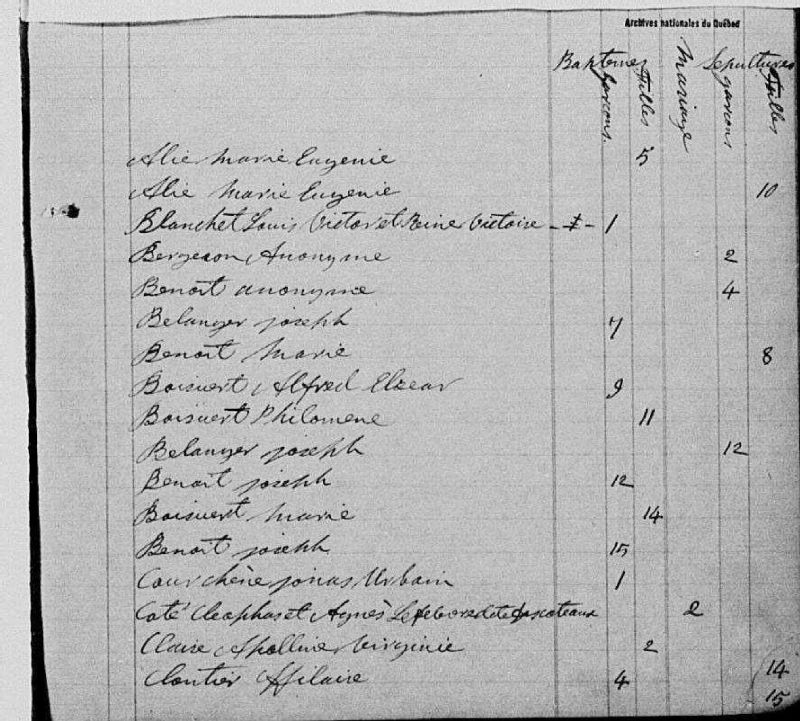 Archives nationales du Québec
Baptemes Mariage Sepultures
garcons Filles garcons Filles
Alie Marie Eugenie 5
Alie Marie Eugenie 10
Blanchet Louis Victor et Reine Victoire -‡- 1
Bergeron Anonyme 2
Benoit anonyme 4
Belanger joseph 7
Benoit Marie 8
Boisvert Alfred Elzear 9
Boisvert Philomene 11
Belanger joseph 12
Benoit joseph 12
Boisvert Marie 14
Benoit joseph 15
Courchène jonas Urbain 1
Coté Cleophas et Agnès Lefebvre dite 2
Claire Apolline Virginie 2
Cloutier Hilaire 4 14
15